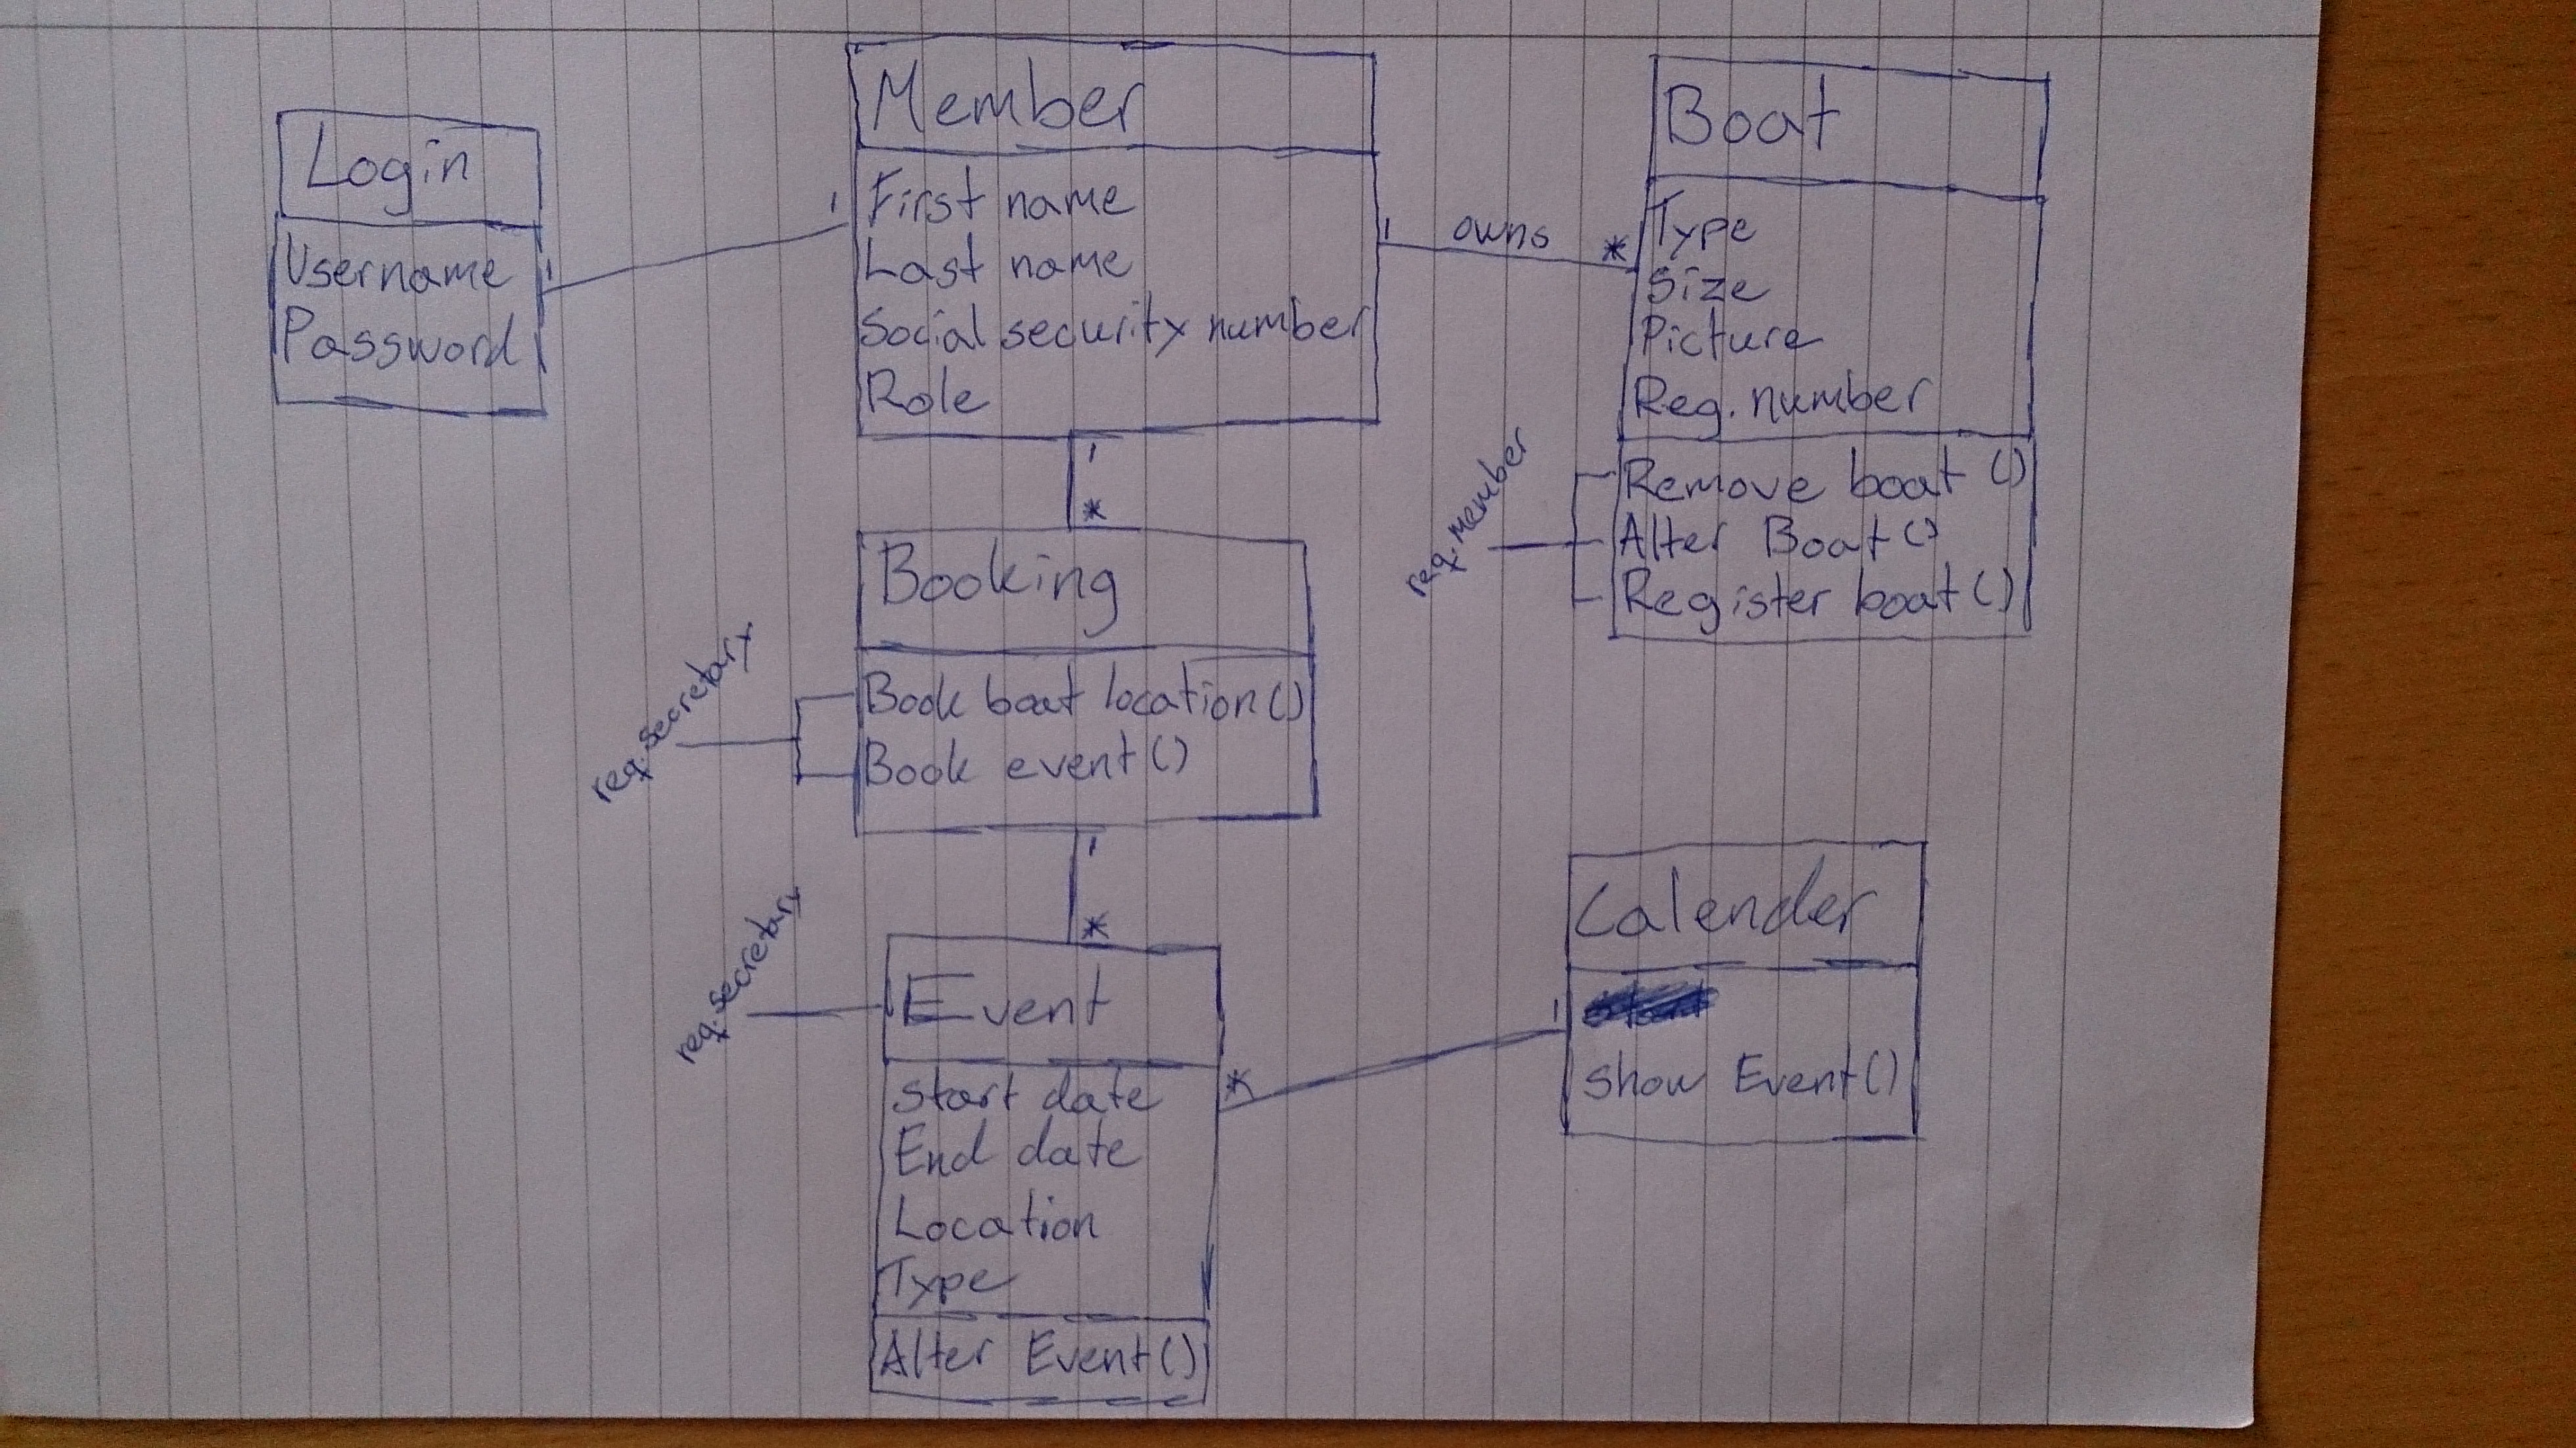 Login
Username
Password
1
1
Member
First name
Last name
Social security number
Role
1
owns
*
Boat
Type
Size
Picture
Reg. number
Remove boat ()
Alter Boat ()
Register boat ()
req. member
1
*
Booking
Book boat location ()
Book event ()
req. secretary
1
*
Event
start date
End date
Location
Type
Alter Event ()
req. secretary
*
1
Calender
show Event ()